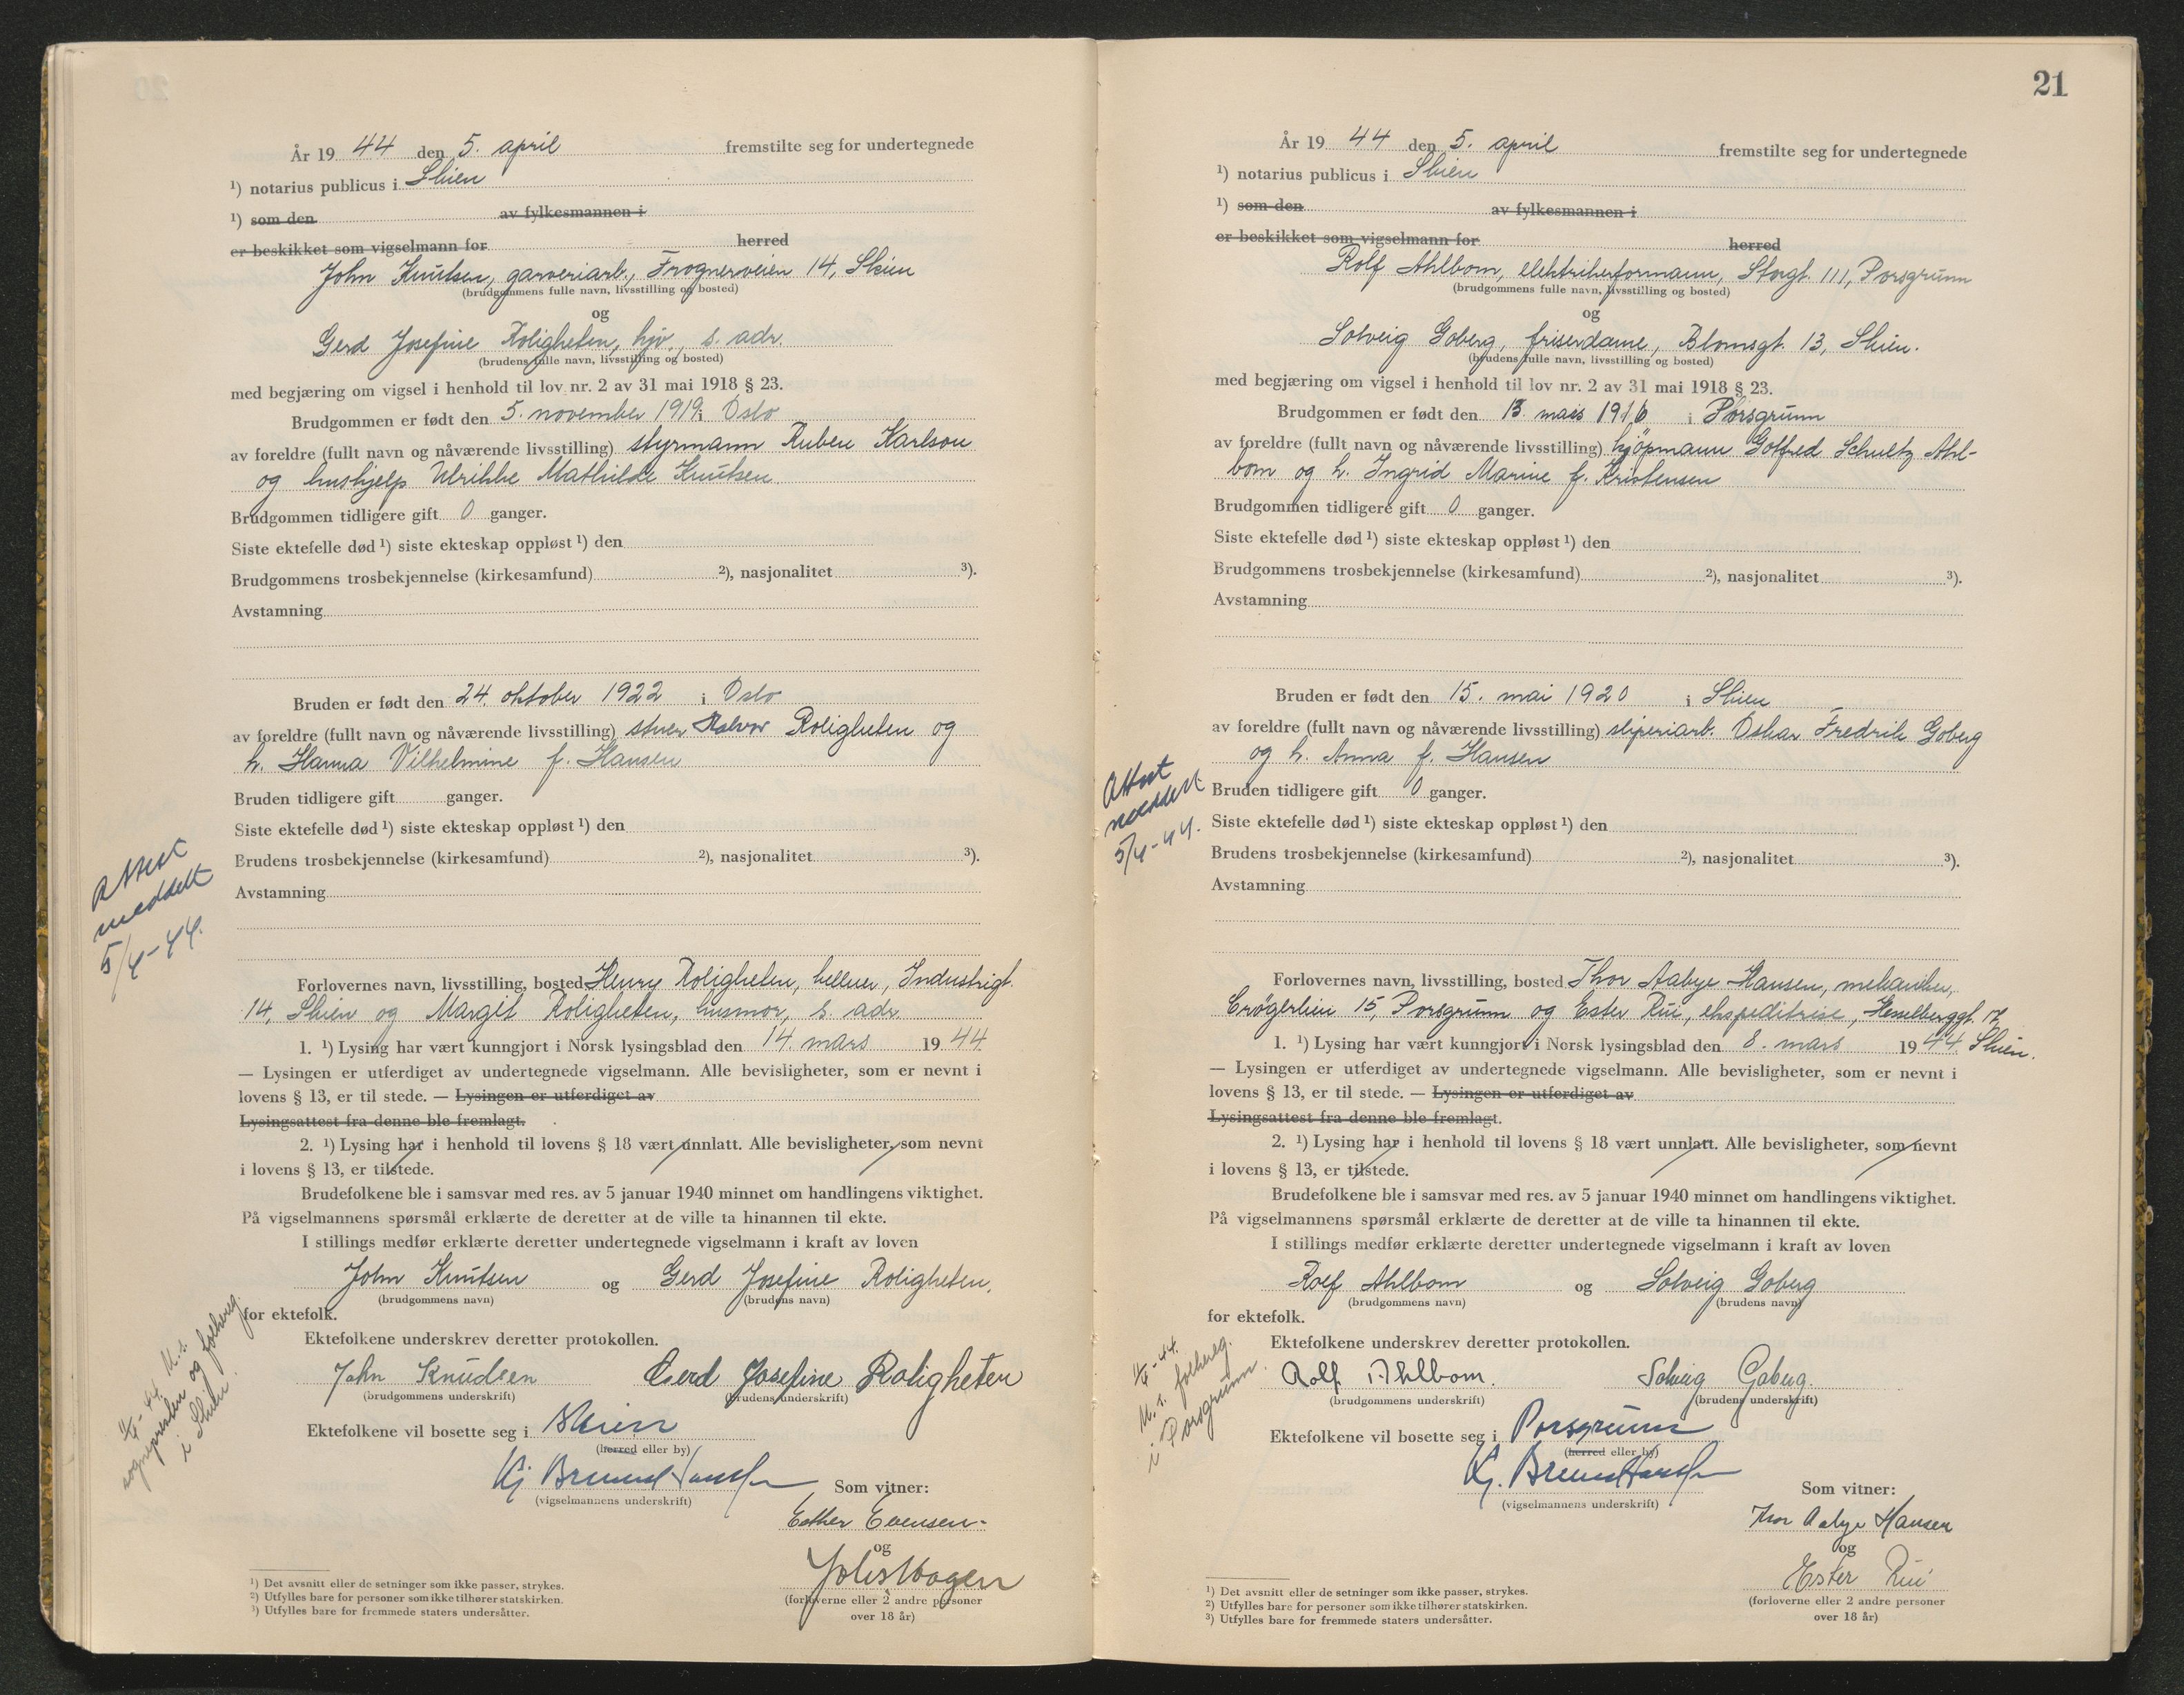 År 19 44 den 5. april fremstilte seg for undertegnede
¹) notarius publicus i Skien
¹) som den av fylkesmannen i
er beskikket som vigselmann for herred
John Knutsen, garveriarb., Frognerveien 14, Skien
(brudgommens fulle navn, livsstilling og bosted)
og
Gerd Josefine Roligheten, hjv., s. adr.
(brudens fulle navn, livsstilling og bosted)
med begjæring om vigsel i henhold til lov nr. 2 av 31 mai 1918 § 23.
Brudgommen er født den 5. november 1919 i Oslo
av foreldre (fullt navn og nåværende livsstilling) styrmann Ruben Karlson
og hushjelp Ulrikke Mathilde Knutsen
Brudgommen tidligere gift 0 ganger.
Siste ektefelle død ¹) siste ekteskap oppløst ¹) den
Brudgommens trosbekjennelse (kirkesamfund) ²), nasjonalitet ³).
Avstamning
Bruden er født den 24. oktober 1922 i Oslo
av foreldre (fullt navn og nåværende livsstilling) stuer Halvor Roligheten og
h. Hanna Vilhelmine f. Hansen
Bruden tidligere gift ganger.
Siste ektefelle død ¹) siste ekteskap oppløst ¹) den
Brudens trosbekjennelse (kirkesamfund) ²), nasjonalitet ³).
Avstamning
Attest
meddelt
5/4-44.
Forlovernes navn, livsstilling, bosted Henry Roligheten, kellner, Industrigt.
14, Skien og Margit Roligheten, husmor, s. adr.
1. ¹) Lysing har vært kunngjort i Norsk lysingsblad den 14. mars 19 44
— Lysingen er utferdiget av undertegnede vigselmann. Alle bevisligheter, som er nevnt i
lovens § 13, er til stede. — Lysingen er utferdiget av
Lysingsattest fra denne ble fremlagt.
2. ¹) Lysing har i henhold til lovens § 18 vært unnlatt. Alle bevisligheter, som nevnt
i lovens § 13, er tilstede.
Brudefolkene ble i samsvar med res. av 5 januar 1940 minnet om handlingens viktighet.
På vigselmannens spørsmål erklærte de deretter at de ville ta hinannen til ekte.
I stillings medfør erklærte deretter undertegnede vigselmann i kraft av loven
John Knutsen og Gerd Josefine Roligheten,
(brudgommens navn) (brudens navn)
for ektefolk.
Ektefolkene underskrev deretter protokollen.
John Knudsen Gerd Josefine Roligheten
(brudgommens underskrift) (brudens underskrift)
M. s.
sognepresten og folkereg.
i Skien.
Ektefolkene vil bosette seg i Skien
(herred eller by)
Kj Bruun Hanssen
(vigselmannens underskrift)
Som vitner:
Esther Evensen
og
(forloverne eller 2 andre personer
over 18 år)
¹) Det avsnitt eller de setninger som ikke passer, strykes.
²) Utfylles bare for personer som ikke tilhører statskirken.
³) Utfylles bare for fremmede staters undersåtter.
21
År 19 44 den 5. april fremstilte seg for undertegnede
¹) notarius publicus i Skien
¹) som den av fylkesmannen i
er beskikket som vigselmann for herred
Rolf Ahlbom, elektrikerformann, Storgt. 111, Porsgrunn
(brudgommens fulle navn, livsstilling og bosted)
og
Solveig Goberg, friserdame, Blomsgt. 13, Skien.
(brudens fulle navn, livsstilling og bosted)
med begjæring om vigsel i henhold til lov nr. 2 av 31 mai 1918 § 23.
Brudgommen er født den 13. mars 1916 i Porsgrunn
av foreldre (fullt navn og nåværende livsstilling) kjöpmann Gotfred Schultz Ahl-
bom og h. Ingrid Marine f. Kristensen
Brudgommen tidligere gift 0 ganger.
Siste ektefelle død ¹) siste ekteskap oppløst ¹) den
Brudgommens trosbekjennelse (kirkesamfund) ²), nasjonalitet ³).
Avstamning
Bruden er født den 15. mai 1920 i Skien
av foreldre (fullt navn og nåværende livsstilling) sliperiarb. Oskar Fredrik Goberg
og h. Anna f. Hansen
Attest
meddelt
5/4-44.
Bruden tidligere gift 0 ganger.
Siste ektefelle død ¹) siste ekteskap oppløst ¹) den
Brudens trosbekjennelse (kirkesamfund) ²), nasjonalitet ³).
Avstamning
Forlovernes navn, livsstilling, bosted Thor Aabye Hansen, mekaniker,
Crögerlien 15, Porsgrunn og Ester Rui, ekspeditrise, Hesselberggt. 17,
1. ¹) Lysing har vært kunngjort i Norsk lysingsblad den 8. mars 19 44. Skien.
— Lysingen er utferdiget av undertegnede vigselmann. Alle bevisligheter, som er nevnt i
lovens § 13, er til stede. — Lysingen er utferdiget av
Lysingsattest fra denne ble fremlagt.
2. ¹) Lysing har i henhold til lovens § 18 vært unnlatt. Alle bevisligheter, som nevnt
i lovens § 13, er tilstede.
Brudefolkene ble i samsvar med res. av 5 januar 1940 minnet om handlingens viktighet.
På vigselmannens spørsmål erklærte de deretter at de ville ta hinannen til ekte.
I stillings medfør erklærte deretter undertegnede vigselmann i kraft av loven
Rolf Ahlbom og Solveig Goberg
(brudgommens navn) (brudens navn)
for ektefolk.
Ektefolkene underskrev deretter protokollen.
Rolf Ahlbom. Solveig Goberg.
(brudgommens underskrift) (brudens underskrift)
M. s. folkereg.
i Porsgrunn.
Ektefolkene vil bosette seg i Porsgrunn
(herred eller by)
Kj. Bruun Hanssen
(vigselmannens underskrift)
Som vitner:
Thor Aabye Hansen
og
Ester Rui
(forloverne eller 2 andre personer
over 18 år)
¹) Det avsnitt eller de setninger som ikke passer, strykes.
²) Utfylles bare for personer som ikke tilhører statskirken.
³) Utfylles bare for fremmede staters undersåtter.